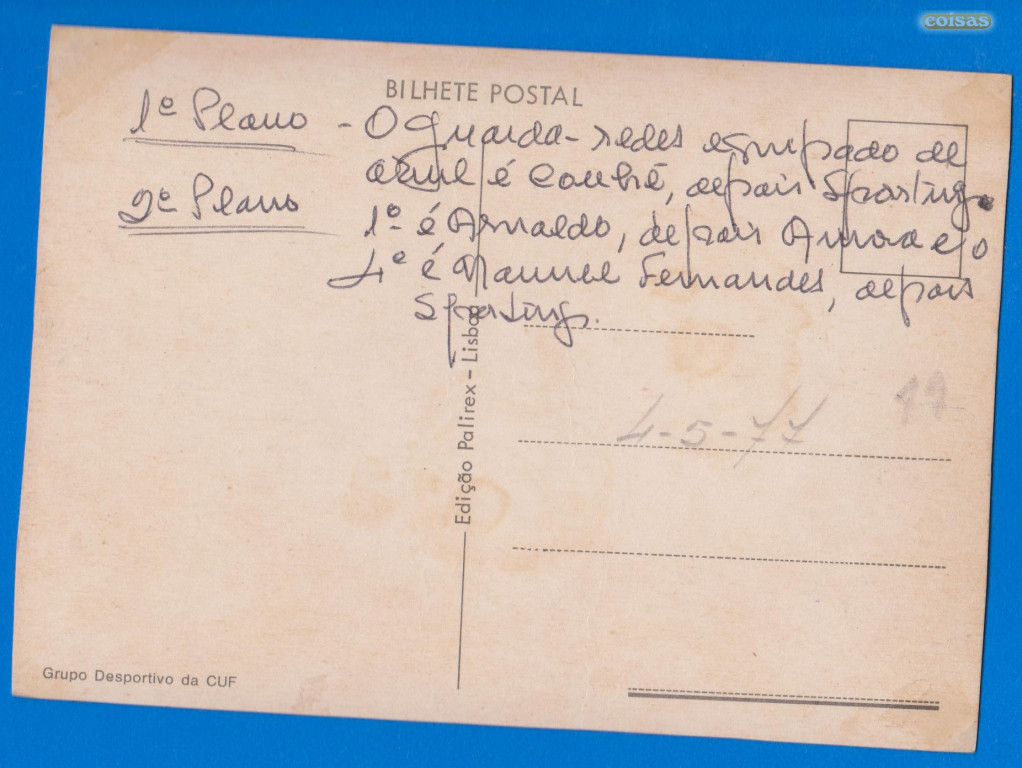 eoisas
BILHETE POSTAL
1º Plano - O guarda-redes equipado de
azul é Conhé, depois Sporting.
2º Plano 1º é Arnaldo, depois Amora e o
4º é Manuel Fernandes, depois
Sporting.
Edição Palirex - Lisboa
4-5-77
Grupo Desportivo da CUF